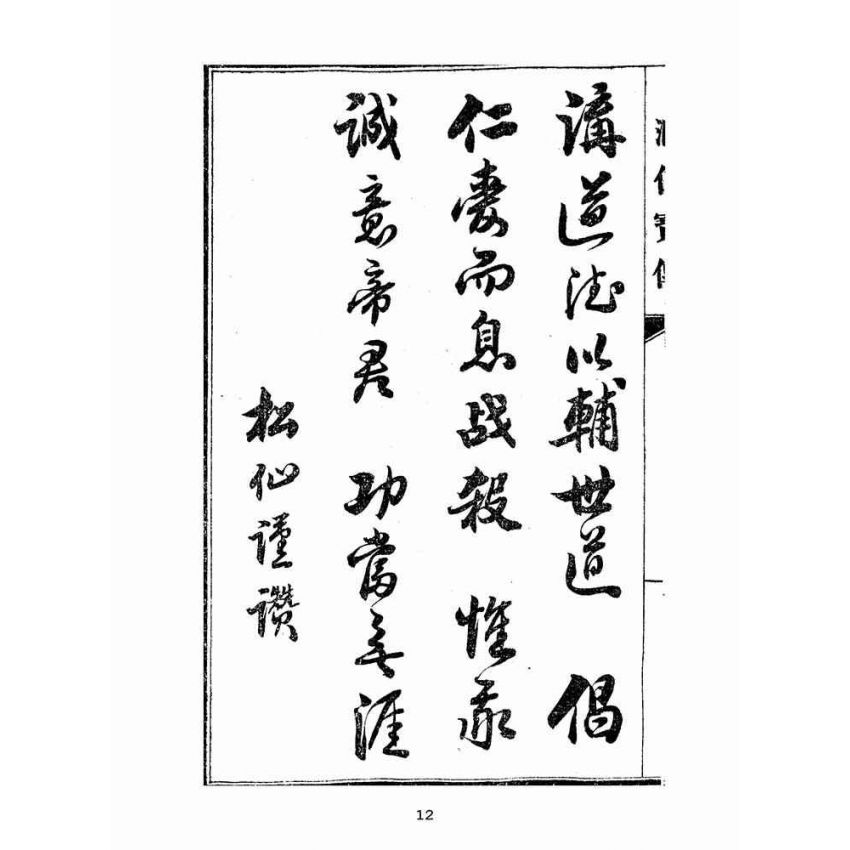 講道德以輔世道 倡
仁愛而息战殺 惟我
誠意帝君 功當無涯
松仙謹讚
12